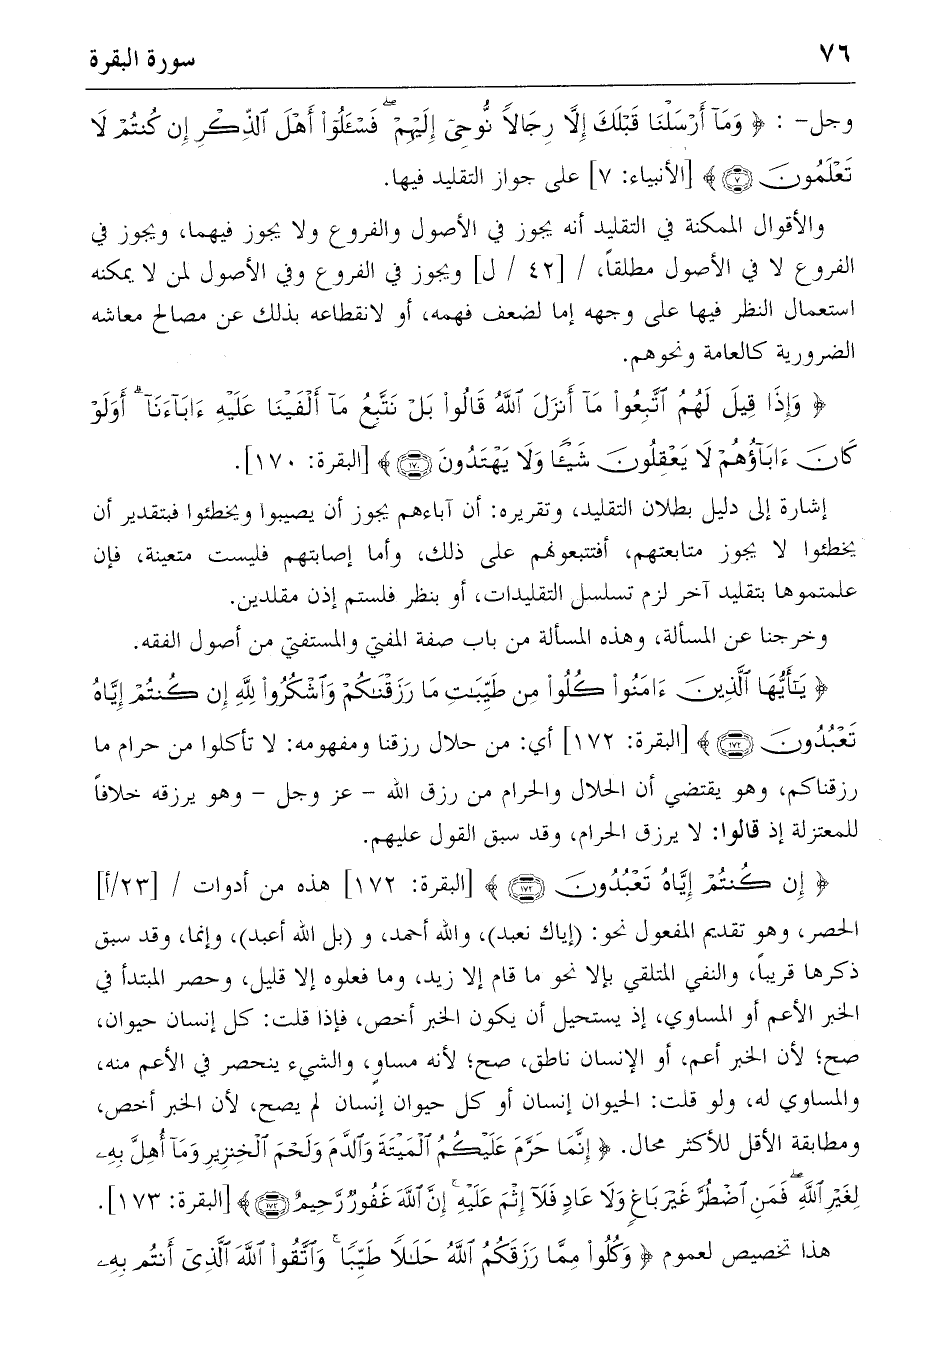 ٧٦ سورة البقرة
وجل- : ﴿ وَمَآ أَرْسَلْنَا قَبْلَكَ إِلَّا رِجَالًا نُّوحِىٓ إِلَيْهِمْ ۖ فَسْـَٔلُوٓا۟ أَهْلَ ٱلذِّكْرِ إِن كُنتُمْ لَا
تَعْلَمُونَ ٧ ﴾ [الأنبياء: ٧] على جواز التقليد فيها.
والأقوال الممكنة في التقليد أنه يجوز في الأصول والفروع ولا يجوز فيهما، ويجوز في
الفروع لا في الأصول مطلقاً، / [٤٢ / ل] ويجوز في الفروع وفي الأصول لمن لا يمكنه
استعمال النظر فيها على وجهه إما لضعف فهمه، أو لانقطاعه بذلك عن مصالح معاشه
الضرورية كالعامة ونحوهم.
﴿ وَإِذَا قِيلَ لَهُمُ ٱتَّبِعُوا۟ مَآ أَنزَلَ ٱللَّهُ قَالُوا۟ بَلْ نَتَّبِعُ مَآ أَلْفَيْنَا عَلَيْهِ ءَابَآءَنَآ ۗ أَوَلَوْ
كَانَ ءَابَآؤُهُمْ لَا يَعْقِلُونَ شَيْـًٔا وَلَا يَهْتَدُونَ ١٧٠ ﴾ [البقرة: ١٧٠].
إشارة إلى دليل بطلان التقليد، وتقريره: أن آباءهم يجوز أن يصيبوا ويخطئوا فبتقدير أن
يخطئوا لا يجوز متابعتهم، أفتتبعونهم على ذلك، وأما إصابتهم فليست متعينة، فإن
علمتموها بتقليد آخر لزم تسلسل التقليدات، أو بنظر فلستم إذن مقلدين.
وخرجنا عن المسألة، وهذه المسألة من باب صفة المفتي والمستفتي من أصول الفقه.
﴿ يَـٰٓأَيُّهَا ٱلَّذِينَ ءَامَنُوا۟ كُلُوا۟ مِن طَيِّبَـٰتِ مَا رَزَقْنَـٰكُمْ وَٱشْكُرُوا۟ لِلَّهِ إِن كُنتُمْ إِيَّاهُ
تَعْبُدُونَ ١٧٢ ﴾ [البقرة: ١٧٢] أي: من حلال رزقنا ومفهومه: لا تأكلوا من حرام ما
رزقناكم، وهو يقتضي أن الحلال والحرام من رزق الله - عز وجل - وهو يرزقه خلافاً
للمعتزلة إذ قالوا: لا يرزق الحرام، وقد سبق القول عليهم.
﴿ إِن كُنتُمْ إِيَّاهُ تَعْبُدُونَ ١٧٢ ﴾ [البقرة: ١٧٢] هذه من أدوات / [٢٣/أ]
الحصر، وهو تقديم المفعول نحو: (إياك نعبد)، والله أحمد، و (بل الله أعبد)، وإنما، وقد سبق
ذكرها قريباً، والنفي المتلقي بإلا نحو ما قام إلا زيد، وما فعلوه إلا قليل، وحصر المبتدأ في
الخبر الأعم أو المساوي، إذ يستحيل أن يكون الخبر أخص، فإذا قلت: كل إنسان حيوان،
صح؛ لأن الخبر أعم، أو الإنسان ناطق، صح؛ لأنه مساوٍ، والشيء ينحصر في الأعم منه،
والمساوي له، ولو قلت: الحيوان إنسان أو كل حيوان إنسان لم يصح، لأن الخبر أخص،
ومطابقة الأقل للأكثر محال. ﴿ إِنَّمَا حَرَّمَ عَلَيْكُمُ ٱلْمَيْتَةَ وَٱلدَّمَ وَلَحْمَ ٱلْخِنزِيرِ وَمَآ أُهِلَّ بِهِۦ
لِغَيْرِ ٱللَّهِ ۖ فَمَنِ ٱضْطُرَّ غَيْرَ بَاغٍ وَلَا عَادٍ فَلَآ إِثْمَ عَلَيْهِ ۚ إِنَّ ٱللَّهَ غَفُورٌ رَّحِيمٌ ١٧٣ ﴾ [البقرة: ١٧٣].
هذا تخصيص لعموم ﴿ وَكُلُوا۟ مِمَّا رَزَقَكُمُ ٱللَّهُ حَلَـٰلًا طَيِّبًا ۚ وَٱتَّقُوا۟ ٱللَّهَ ٱلَّذِىٓ أَنتُم بِهِۦ